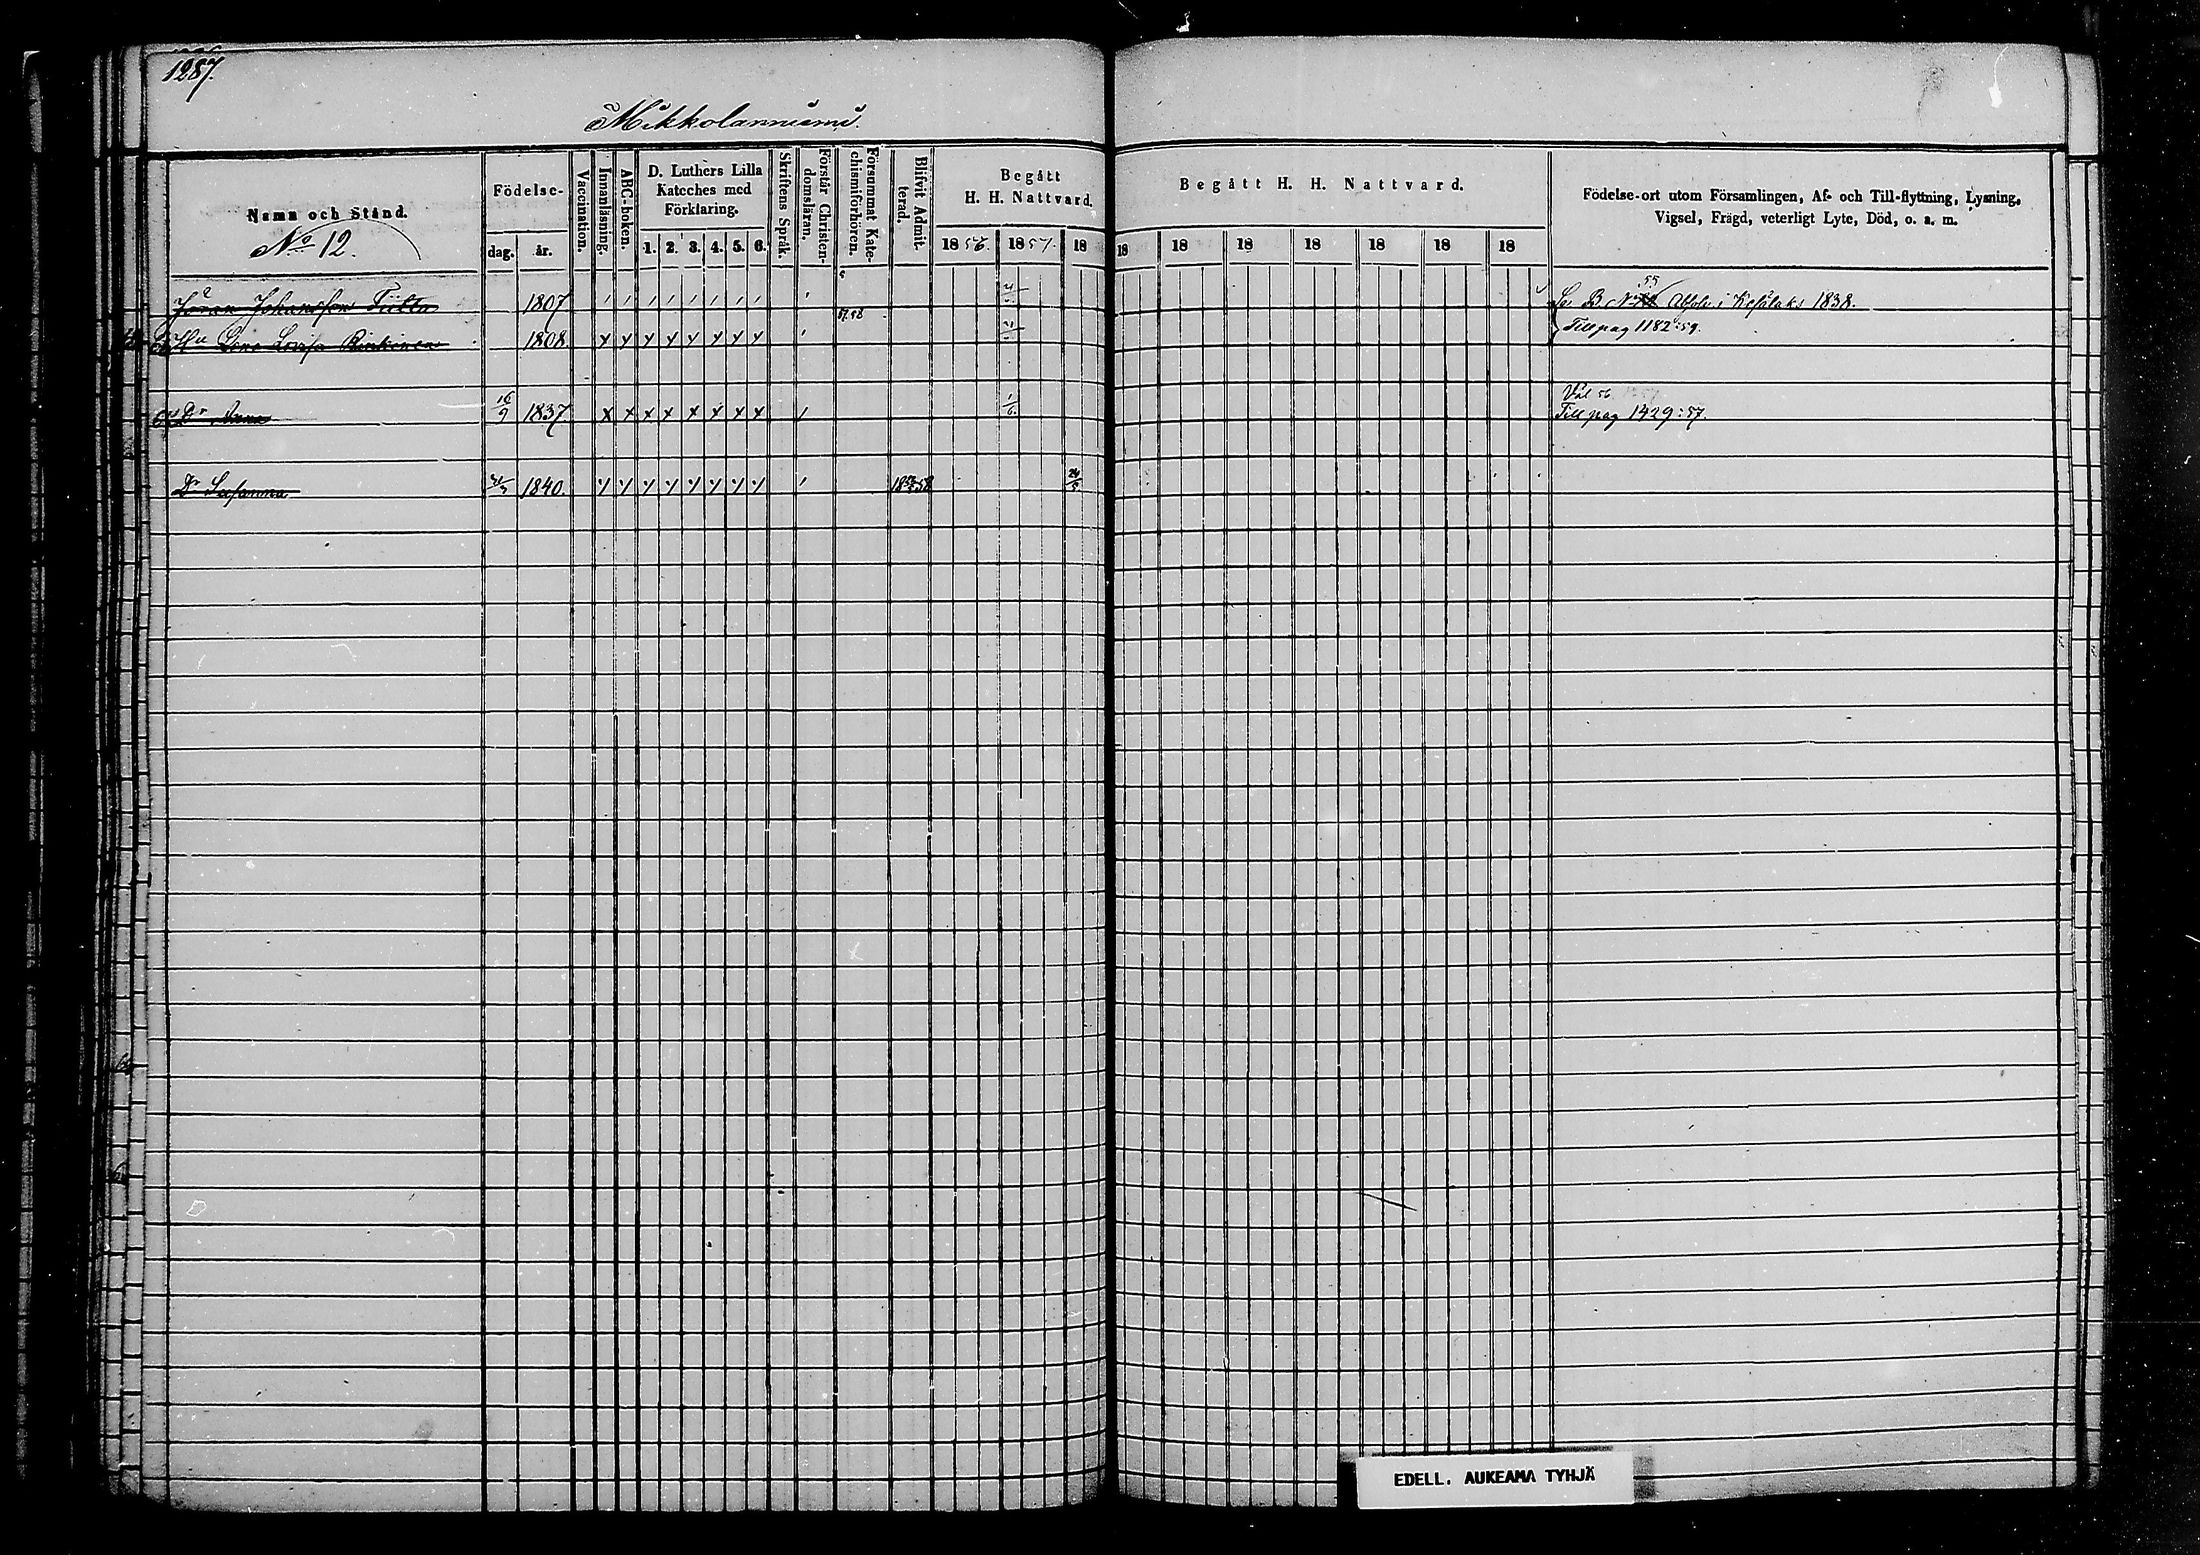 1287.
Mikkolanniemi.
Namn och Stånd.
No 12.
Födelse-
dag. år.
Vaccination.
Innanläsning.
ABC-boken.
D. Luthers Lilla
Kateches med
Förklaring.
1. 2. 3. 4. 5. 6.
Skriftens Språk.
Förstår Christen-
domsläran.
Försummat Kate-
chismiförhören.
Blifvit Admit-
terad.
Begått
H. H. Nattvard.
1856. 1857. 18
Begått H. H. Nattvard.
18 18 18 18 18 18 18
Födelse-ort utom Församlingen, Af- och Till-flyttning, Lysning,
Vigsel, Frägd, veterligt Lyte, Död, o. s. m.
Jöran Johansson Tiilta 1807 Se B No 55 Absolv. i Kesälaks 1838.
57.58
Hu Lena Lovisa Rinkinen 1808. Till pag 1182:59.
Väl 56
Dr Anna 16/9 1837. 1/6 Till pag 1429:57.
Dr Susanna 1840. 58 24/5
EDELL. AUKEAMA TYHJÄ